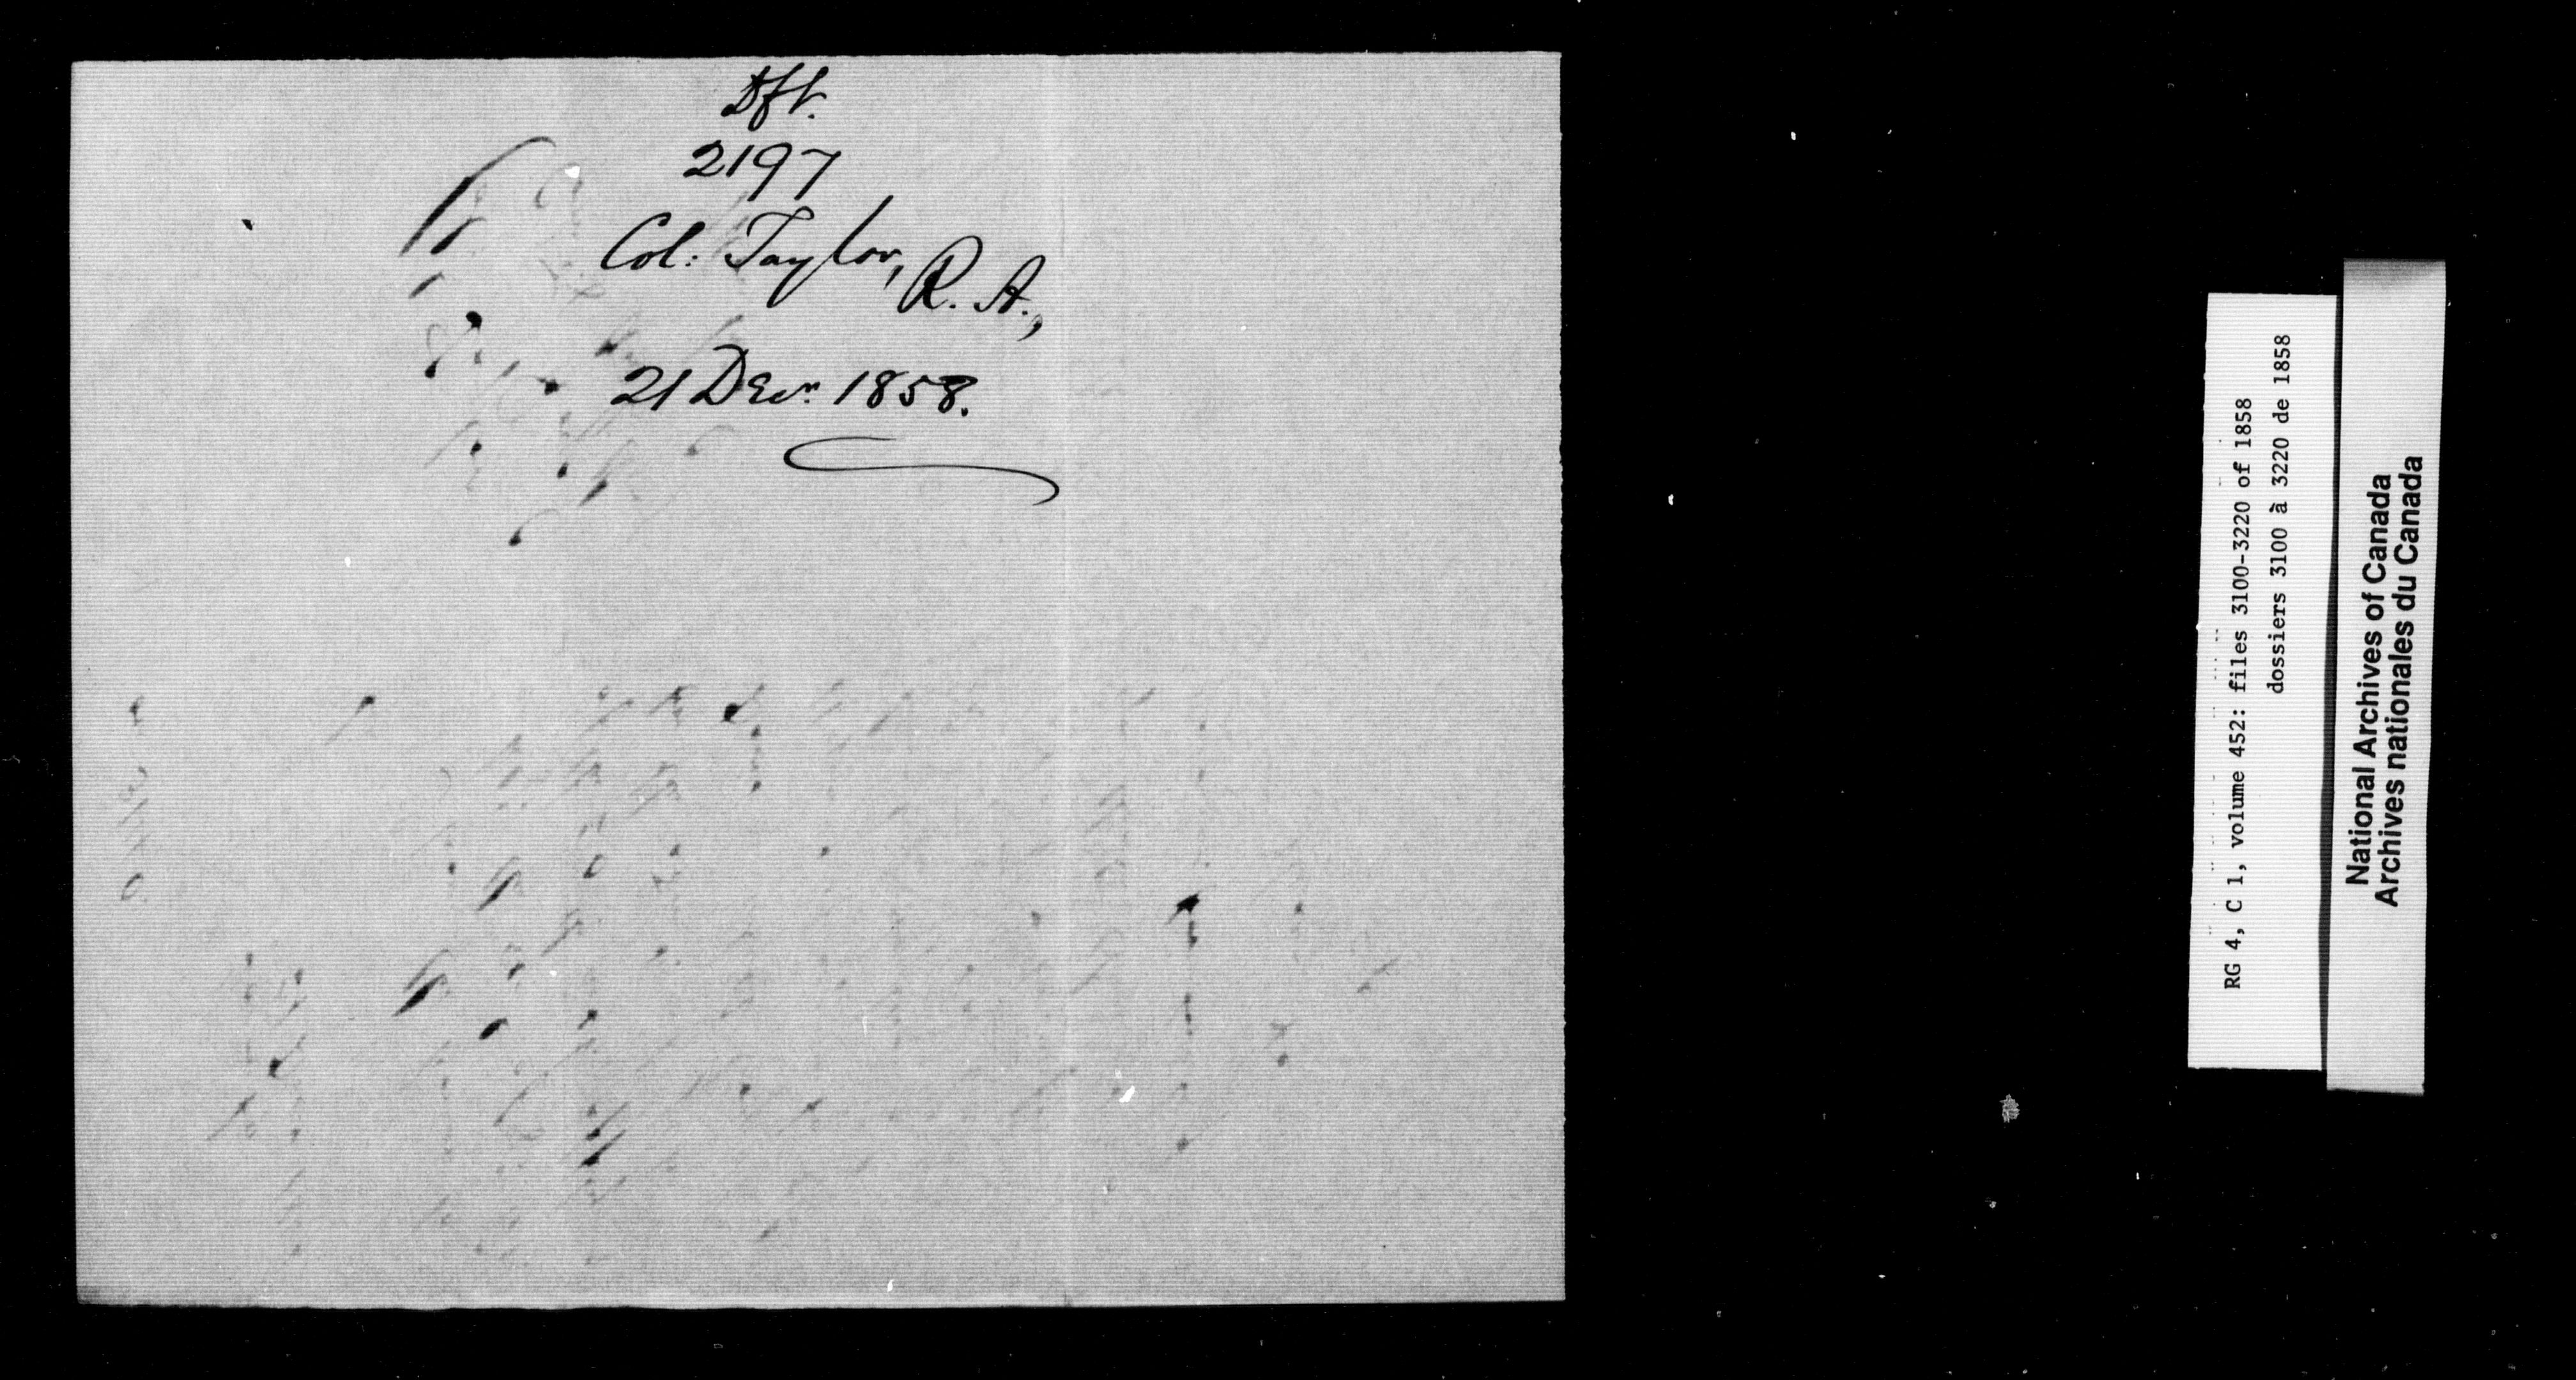 Dft.
2197
Col: Taylor, R. A.,
21 Decr. 1858.
RG 4, C 1, volume 452: files 3100-3220 of 1858
dossiers 3100 à 3220 de 1858
National Archives of Canada
Archives nationales du Canada